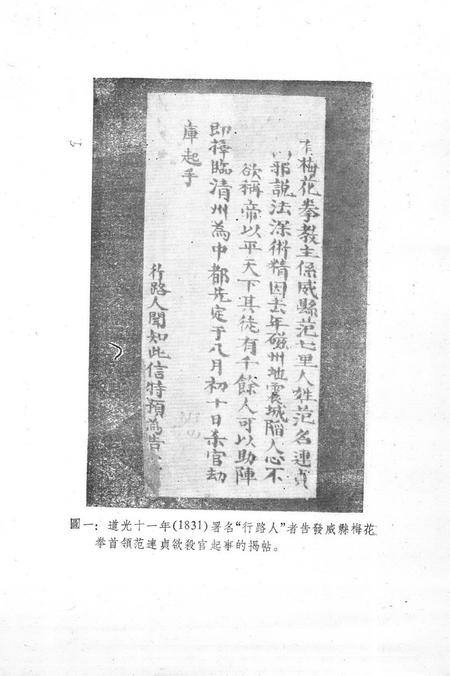 有梅花拳教主係威縣范七里人姓范名連貞
邪說法深術精因去年磁州地震城陷人心不
欲稱帝以平天下其徒有千餘人可以助陣
即擇臨清州為中都先定于八月初十日杀官劫
庫起手
行路人聞知此信特預為告
圖一：道光十一年(1831)署名“行路人”者告發威縣梅花
拳首領范連貞欲殺官起事的揭帖。